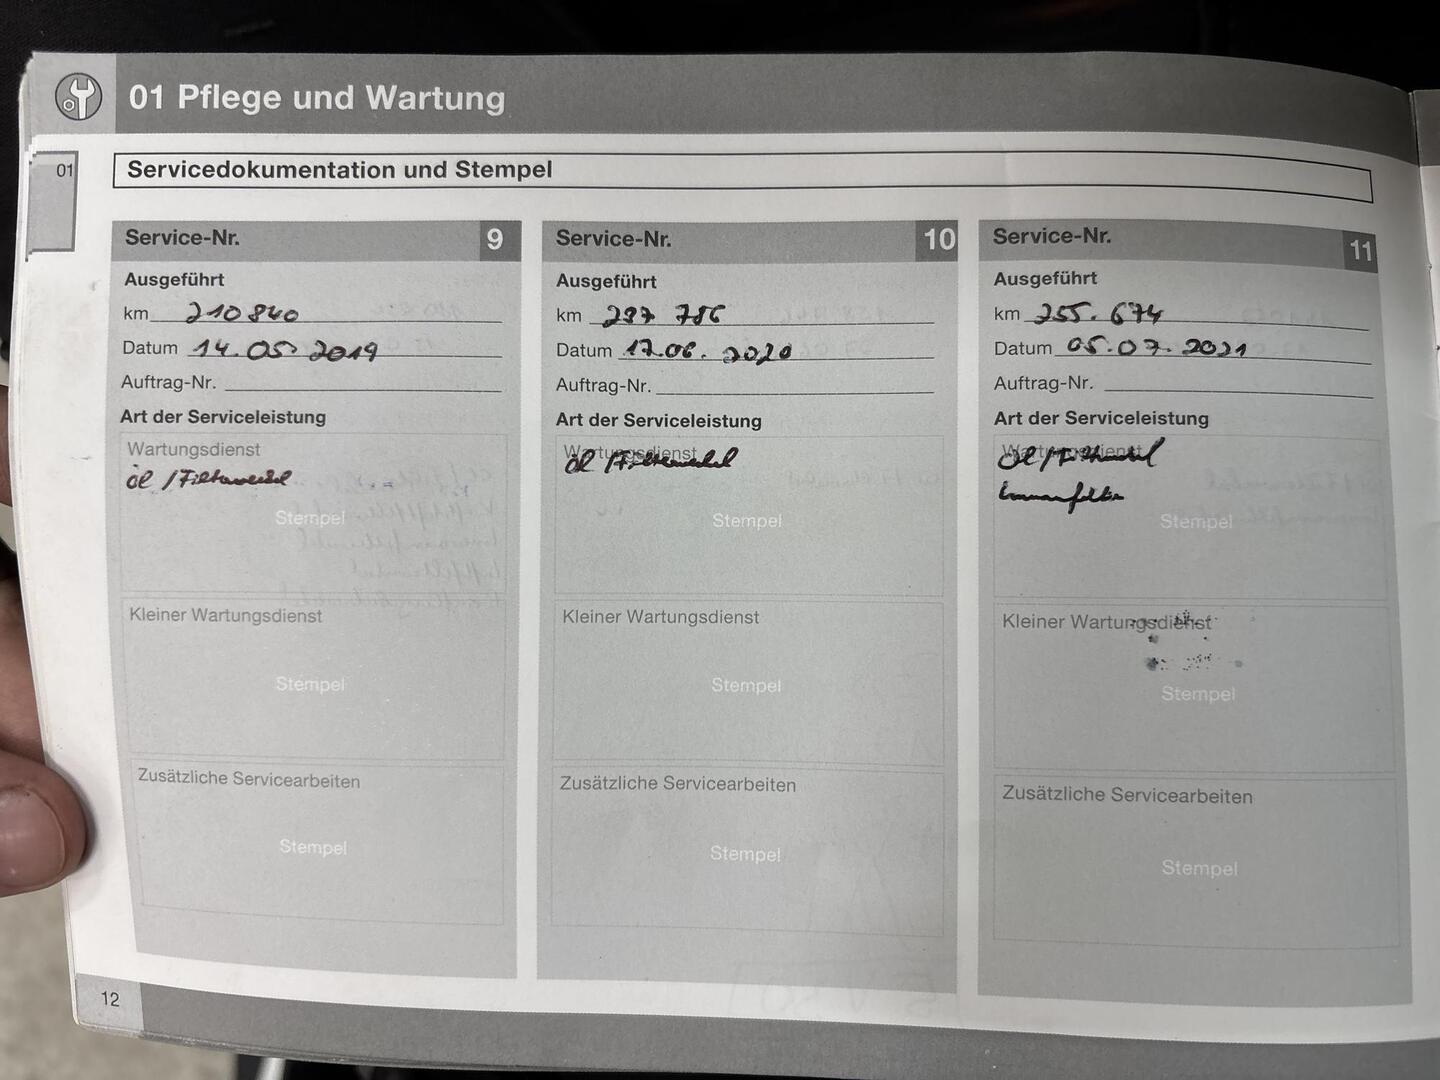 01 Pflege und Wartung
01
Servicedokumentation und Stempel
Service-Nr. 9
Ausgeführt
km 210840
Datum 14.05.2019
Auftrag-Nr.
Art der Serviceleistung
Wartungsdienst
öl / Filterwechsel
Stempel
Kleiner Wartungsdienst
Stempel
Zusätzliche Servicearbeiten
Stempel
Service-Nr. 10
Ausgeführt
km 237 786
Datum 17.06.2020
Auftrag-Nr.
Art der Serviceleistung
Wartungsdienst
öl / Filterwechsel
Stempel
Kleiner Wartungsdienst
Stempel
Zusätzliche Servicearbeiten
Stempel
Service-Nr. 11
Ausgeführt
km 255.674
Datum 05.07.2021
Auftrag-Nr.
Art der Serviceleistung
Wartungsdienst
Öl / Filterwechsel
Stempel
Kleiner Wartungsdienst
Stempel
Zusätzliche Servicearbeiten
Stempel
12